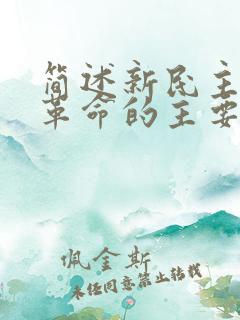 简述新民主
革命的主要
佩金斯
未经同意禁止转载